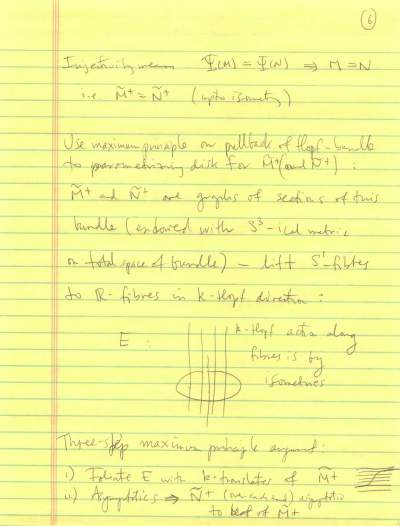 6
Injectivity means Ψ(M) = Ψ(N) ⇒ M = N
i.e M̃⁺ = Ñ⁺ (upto isometry)
Use maximum principle on pullback of Hopf-bundle
to parametrizing disk for M̃⁺(and Ñ⁺) :
M̃⁺ and Ñ⁺ are graphs of sections of this
bundle (endowed with S³-ical metric
on total space of bundle) — lift S¹-fibres
to ℝ-fibres in k-Hopf direction:
E : k-Hopf action along
fibres is by
isometries
Three-step maximum principle argument:
i) Foliate E with k-translates of M̃⁺
ii) Asymptotics ⇒ Ñ⁺ (on each end) asymptotic
to leaf of M̃⁺